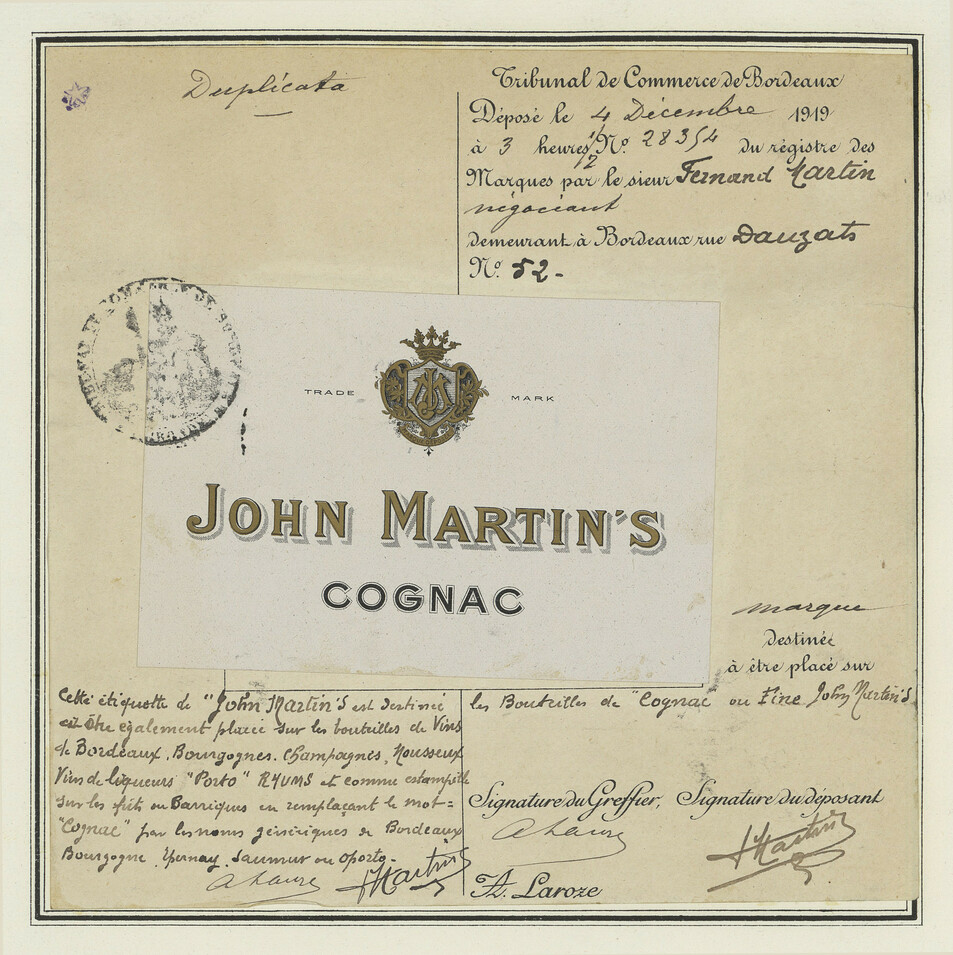 Duplicata
Tribunal de Commerce de Bordeaux
Déposé le 4 Décembre 1919
à 3 heures 1/2 No. 28354 du régistre des
Marques par le sieur Fernand Martin
négociant
demeurant à Bordeaux rue Dauzats
No. 52-
TRADE MARK
JOHN MARTIN'S
COGNAC
marque
destinée
à être placé sur
les Bouteilles de "Cognac" ou Fine John Martin's
Cette étiquette de "John Martin's est destinée
à être également placée sur les bouteilles de Vins
de Bordeaux, Bourgognes, Champagnes, Mousseux
Vins de liqueurs "Porto" RHUMS et comme estampille
sur les fûts ou Barriques en remplaçant le mot=
"Cognac" par les noms génériques de Bordeaux
Bourgogne, Epernay, Saumur ou Oporto-
Signature du Greffier, Signature du déposant
A. Laroze